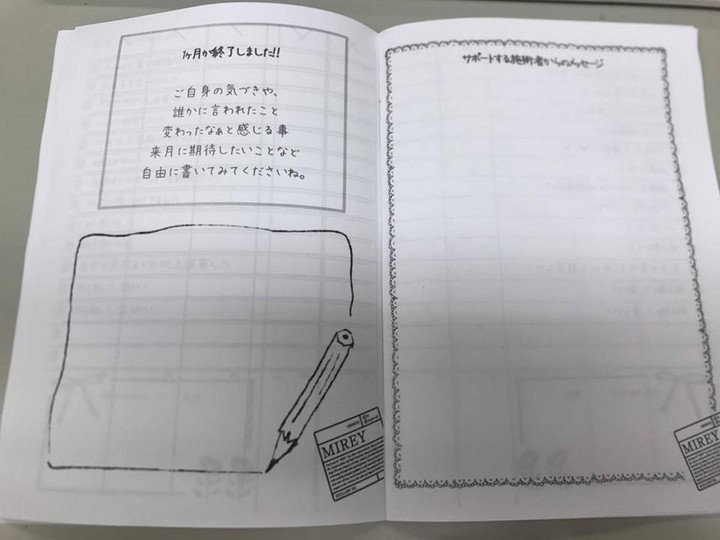 1ヶ月が終了しました!!
ご自身の気づきや、
誰かに言われたこと
変わったなぁと感じる事
来月に期待したいことなど
自由に書いてみてくださいね。
MIREY
サポートする施術者からのメッセージ
MIREY